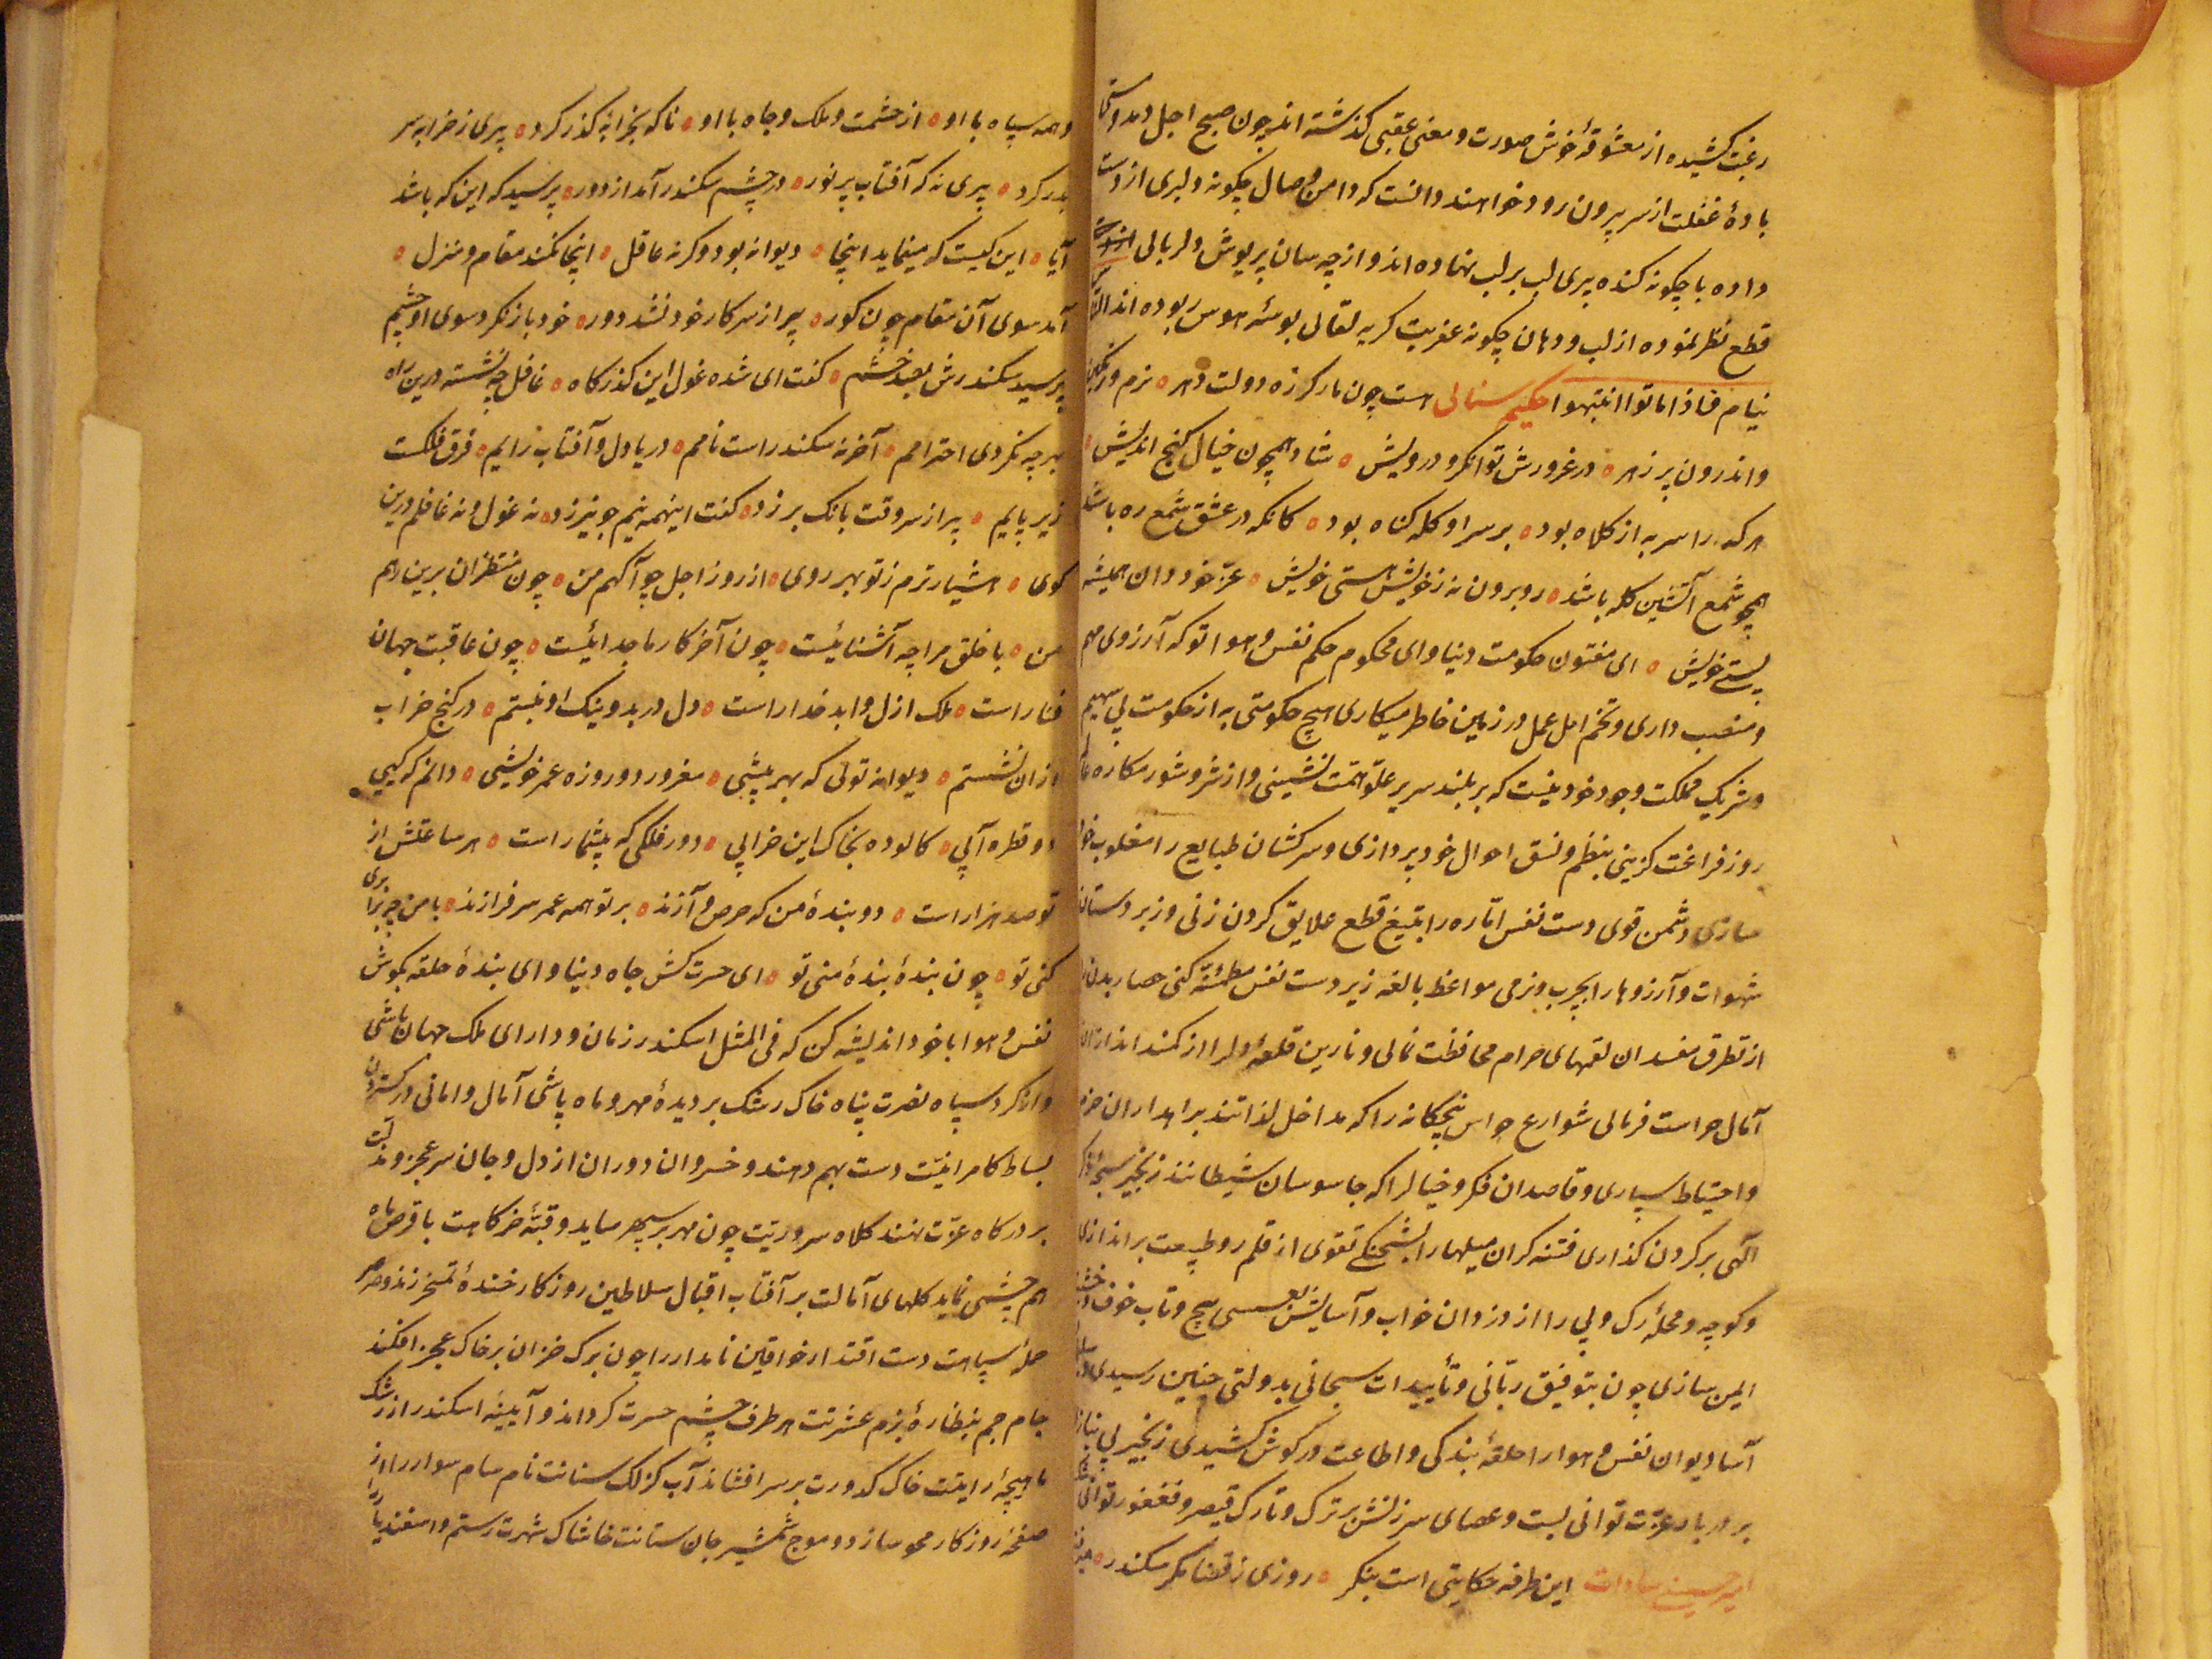 رغبت کشیده از معشوقهٔ خوش صورت و معنی عقبی کذشته اند چون صبح اجل دمد و
بادهٔ غفلت از سر بیرون رود خواهند دانست که دامن وصال چکونه دلبری از دست
داده با چکونه کنده پیری لب بر لب نهاده اند و از چه سان پریوش دلربائی
قطع نظر نموده از لب و دهان چکونه عفریت کریه لقائی بوسهٔ هوس ربوده اند الناس
نیام فاذا ماتوا انتبهوا حکیم سنائی هست چون مار کرزه دولت دهر ٥ نرم و رنکین
و اندرون پر زهر ٥ در غرورش توانکر و درویش ٥ شاد همچون خیال کنج اندیش ٥
هر که را سر به از کلاه بود ٥ بر سر او کله کناه بود ٥ کانکه در عشق شمع ره باشد
همچو شمع آتشین کله باشد ٥ رو برون نه ز خویش هستی خویش ٥ عزّ خود دان همیشه
پستی خویش ٥ ای مفتون حکومت دنیا و ای محکوم حکم نفس و هوا تو که آرزوی مهم
و منصب داری و تخم امل عمل در زمین خاطر میکاری هیچ حکومتی به از حکومت بی سهیم
و شریک مملکت وجود خود نیست که بر بلند سریر علوّ همّت نشینی و از شر و شور مکاره
روز فراغت کزینی بنظم و نسق احوال خود پردازی و سرکشان طبایع را مغلوب
سازی دشمن قوی دست نفس امّاره را بتیغ قطع علایق کردن زنی و زبردستان
شهوات و آرزوها را بچرب و نرمی مواعظ بالغه زیردست نفس مطمئنّه کنی حصار بدن
از تطرق مفسدان لقمهای حرام محافظت نمائی و نارین قلعهٔ دلرا از کمند اندازان
آمال حراست فرمائی شوارع حواس پنجکانه را که مداخل لذاتند براهداران حزم
و احتیاط سپاری و قاصدان فکر و خیالرا که جاسوسان شیطانند زنجیر سبحهٔ ذکر
الهی بر کردن کذاری فتنه کران میلها را بشحنکی تقوی از قلمرو طبیعت براندازی
و کوچه و محلهٔ رک و پی را از دزدان خواب و آسایش بعسسی پیچ و تاب خوف
ایمن سازی چون بتوفیق ربّانی و تأییدات سبحانی بدولتی چنین رسیدی
آسا دیوان نفس و هوا را حلقهٔ بندکی و اطاعت در کوش کشیدی زنجیر بی نیازی
بر دربار عزّت توانی بست و عصای سرزنش بر ترک و تارک قیصر و فغفور توانی
امیر حسینی سادات این طرفه حکایتی است بنکر ٥ روزی ز قضا مکر سکندر ٥
و همه سپاه با او ٥ از حشمت و ملک و جاه با او ٥ ناکه بخرابهٔ کذر کرد ٥ پیری ز خرابه سر
بدر کرد ٥ پیری نه که آفتاب پر نور ٥ در چشم سکندر آمد از دور ٥ پرسید که این که باشد
آیا ٥ این کیست که مینماید اینجا ٥ دیوانه بود وکرنه عاقل ٥ اینجا نکند مقام و منزل ٥
آمد سوی آن مقام چون کور ٥ پیر از سر کار خود نشد دور ٥ خود باز نکرد سوی او چشم
پرسید سکندرش بصد خشم ٥ کفت ای شده غول این کذرکاه ٥ غافل چه نشستهٔ درین راه
بهر چه نکردی احترامم ٥ آخر نه سکندر است نامم ٥ دریا دل و آفتاب رایم ٥ فرق فلکست
زیر پایم ٥ پیر از سر وقت بانک بر زد ٥ کفت اینهمه نیم جو نیرزد ٥ نه غول و نه غافلم درین
کوی ٥ هشیارترم ز تو بهر روی ٥ از روز اجل چو آکهم من ٥ چون منتظران برین رهم
من ٥ با خلق مرا چه آشنائیست ٥ چون آخر کار ما جدائیست ٥ چون عاقبت جهان
فنا راست ٥ ملک ازل و ابد خدا راست ٥ دل در بد و نیک او نبستم ٥ در کنج خراب
از ان نشستم ٥ دیوانه توئی که بهر بیشی ٥ مغرور دو روزه عمر خویشی ٥ دانم که کیی
دو قطره آبی ٥ کالوده بخاک این خرابی ٥ دور فلکی که بیشمار است ٥ هر ساعتش از
تو صد هزار است ٥ دو بندهٔ من که حرص و آزند ٥ بر تو همه عمر سرفرازند ٥ با من چه برابری
کنی تو ٥ چون بندهٔ بندهٔ منی تو ٥ ای حسرت کش جاه دنیا و ای بندهٔ حلقه بکوش
نفس و هوا با خود اندیشه کن که فی المثل اسکندر زمان و دارای ملک جهان باشی
و از کرد سپاه نصرت پناه خاک رشک بر دیدهٔ مهر و ماه پاشی آمال و امانی در کستردن
بساط کامرانیت دست بهم دهند و خسروان دوران از دل و جان سر عجز و مذلّت
بر درکاه عزّت نهند کلاه سروریت چون مهر بر سپهر ساید و قبّهٔ خرکاهت با قرص ماه
هم چشمی نماید کلهای آمالت بر آفتاب اقبال سلاطین روزکار خندهٔ تمسخر زند و صرصر
حملهٔ سپاهت دست اقتدار خواقین نامدار را چون برک خزان بر خاک عجز افکند
جام جم بنظارهٔ بزم عشرتت هر طرف چشم حسرت کرداند و آیینهٔ اسکندر از رشک
ماهیچهٔ رایتت خاک کدورت بر سر افشاند آب کزلک سنانت نام سام سوار را از
صفحهٔ روزکار محو سازد و موج شمشیر جان ستانت خاشاک شهرت رستم و اسفندیار را